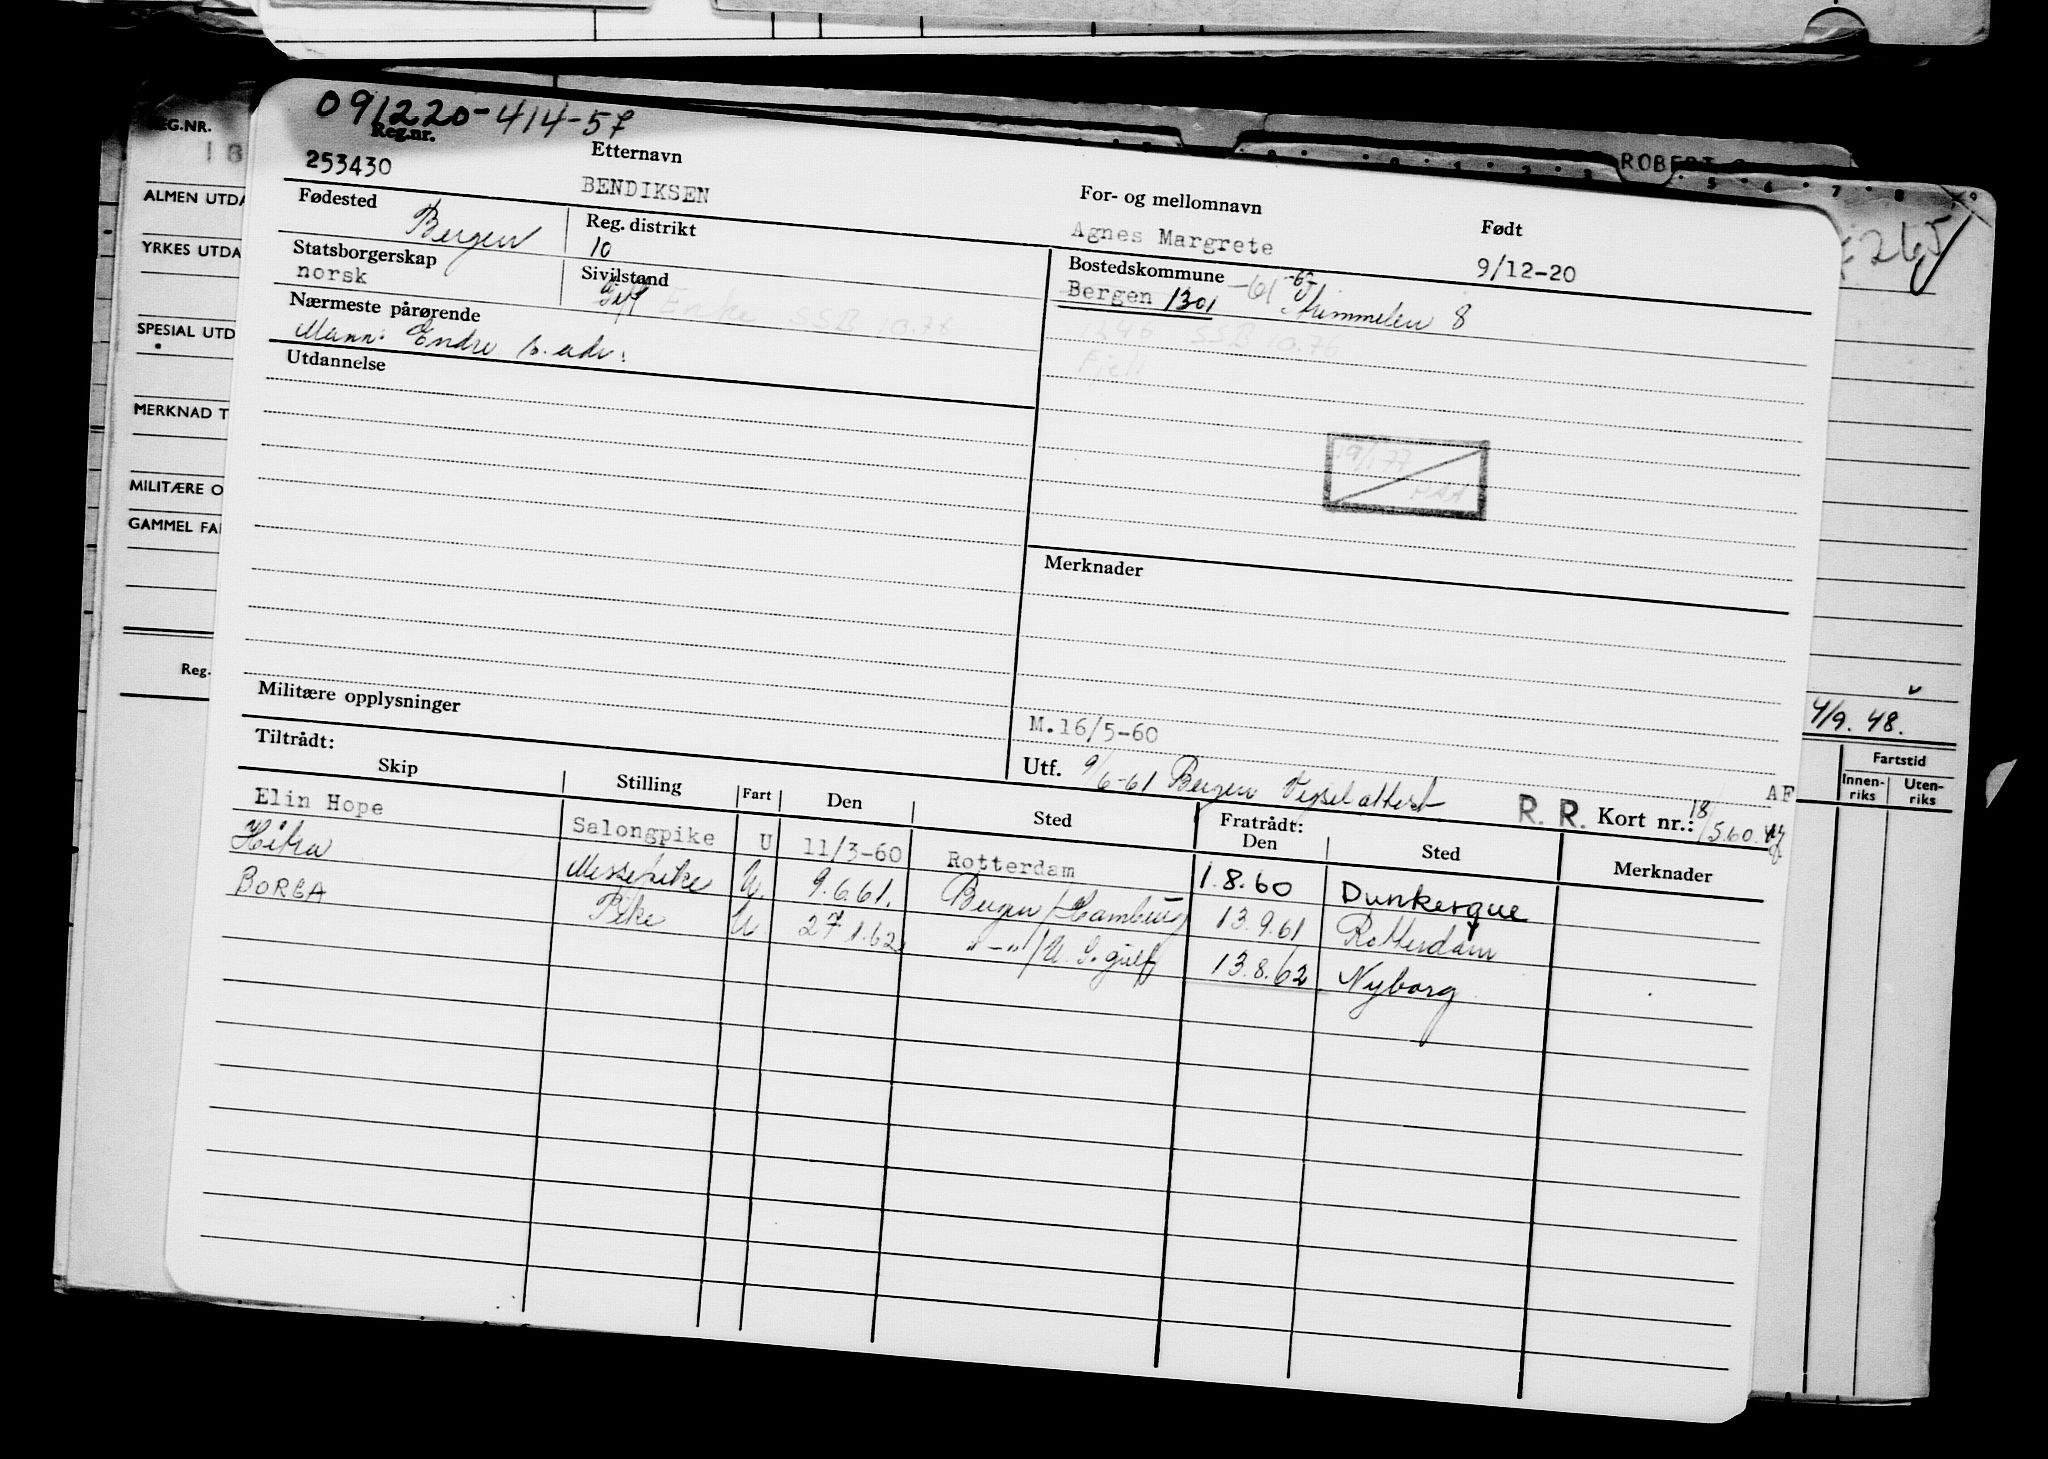 ROBERT
REG.NR.
ALMEN UTDA
YRKES UTDA
SPESIAL UTD
MERKNAD T
MILITÆRE O
GAMMEL FA
Reg.
4/9. 48.
Fartstid
Innen-
riks
Uten-
riks
091220-414-57
Reg.nr.
253430
Etternavn
BENDIKSEN
For- og mellomnavn
Agnes Margrete
Født
9/12-20
Fødested
Bergen
Reg. distrikt
10
Statsborgerskap
norsk
Sivilstand
Gift Enke SSB 10.76
Bostedskommune
Bergen 1301 -61 -62
246 SSB 10.76
Fjell
Nærmeste pårørende
Mann: Endre s. adr.
Utdannelse
19/1 77
Merknader
Militære opplysninger
M.16/5-60
Utf. 9/6-61 Bergen
AF
R. R. Kort nr.: 18/5.60.
Tiltrådt:
Skip Stilling Fart Den Sted Fratrådt: Den Sted Merknader
Elin Hope Salongpike U 11/3-60 Rotterdam 1.8.60 Dunkerque
Hitra Messepike U. 9.6.61. Bergen/Hamburg 13.9.61 Rotterdam
BORGA Pike U 27.1.62 " - " /U.S. gulf 13.8.62 Nyborg